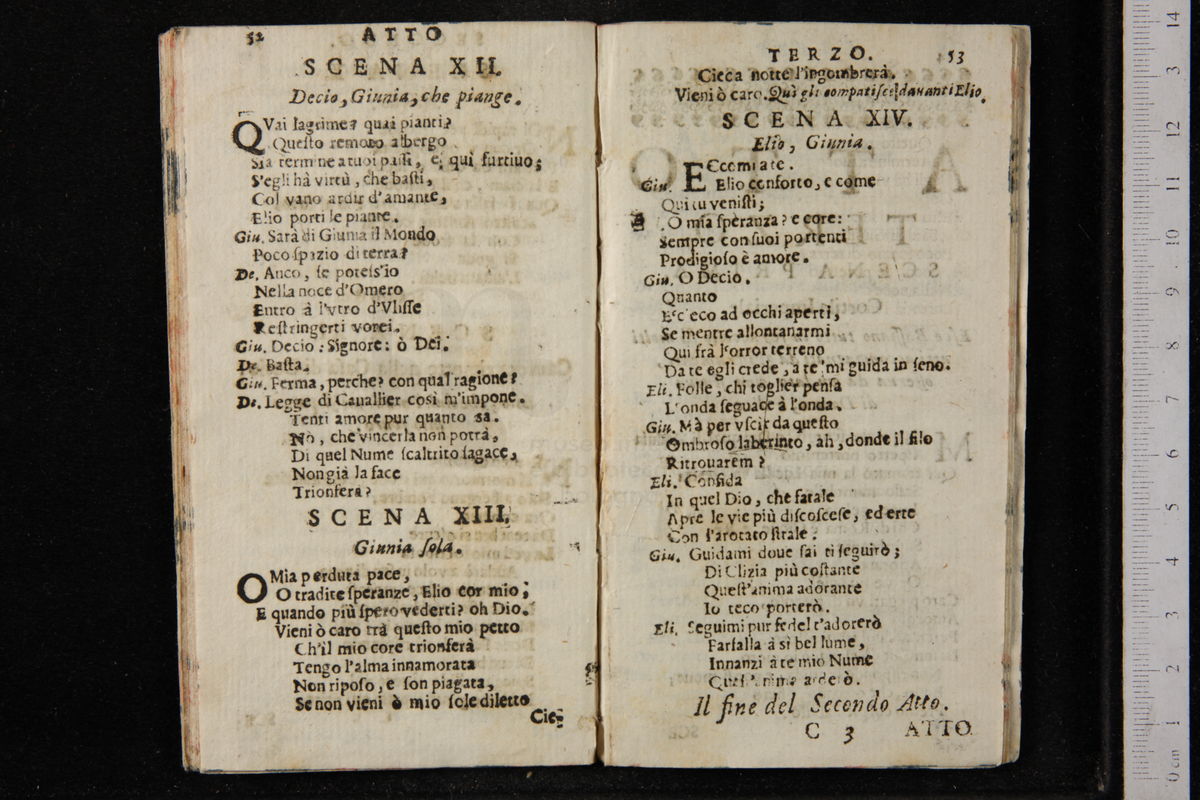 52 ATTO
SCENA XII.
Decio, Giunia, che piange.
QVai lagrime? quai pianti?
Queſto remoto albergo
Sia termine a tuoi paſſi, e, quì furtiuo;
S'egli hà virtù, che baſti,
Col vano ardir d'amante,
Elio porti le piante.
Giu. Sarà di Giunia il Mondo
Poco ſpazio di terra?
De. Anco, ſe poteſs'io
Nella noce d'Omero
Entro à l'vtro d'Vliſſe
Reſtringerti vorei.
Giu. Decio: Signore: ò Dei.
De. Baſta.
Giu. Ferma, perche? con qual ragione?
De. Legge di Cauallier così m'impone.
Tenti amore pur quanto sa.
Nò, che vincerla non potrà,
Di quel Nume ſcaltrito ſagace,
Non già la face
Trionferà?
SCENA XIII.
Giunia ſola.
O Mia perduta pace,
O tradite ſperanze, Elio cor mio;
E quando più ſpero vederti? oh Dio.
Vieni ò caro trà queſto mio petto
Ch'il mio core trionferà
Tengo l'alma innamorata
Non ripoſo, e ſon piagata,
Se non vieni ò mio ſole diletto
Cie-
TERZO. 53
Cieca notte l'ingombrerà.
Vieni ò caro. Quì gli compatiſce davanti Elio.
SCENA XIV.
Elio, Giunia.
ECcomi a te.
Giu. Elio conforto, e come
Qui tu veniſti;
O mia ſperanza? e core:
Sempre con ſuoi portenti
Prodigioſo è amore.
Giu. O Decio.
Quanto
Ec'eco ad occhi aperti,
Se mentre allontanarmi
Qui frà l'orror terreno
Da te egli crede, a te mi guida in ſeno.
Eli. Folle, chi toglier penſa
L'onda ſeguace à l'onda.
Giu. Mà per vſcir da queſto
Ombroſo laberinto, ah, donde il filo
Ritrouarem?
Eli. Confida
In quel Dio, che fatale
Apre le vie più diſcoſceſe, ed erte
Con l'arotato ſtrale.
Giu. Guidami doue ſai ti ſeguirò;
Di Clizia più coſtante
Queſt'anima adorante
Io teco porterò.
Eli. Seguimi pur fedel t'adorerò
Farfalla à sì bel lume,
Innanzi à te mio Nume
Queſt'anima arderò.
Il fine del Secondo Atto.
C 3 ATTO